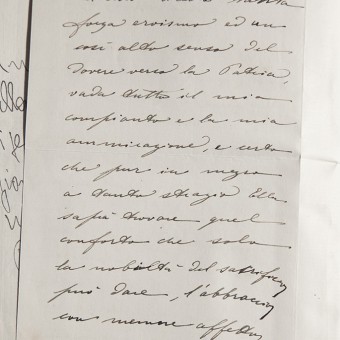 forza eroismo ed un
così alto senso del
dovere verso la Patria,
vada tutto il mio
compianto e la mia
ammirazione, e certo
che pur in mezzo
a tanto strazio Ella
saprà trovare quel
conforto che solo
la nobiltà del sacrificio
può dare, l'abbraccio
con memore affetto